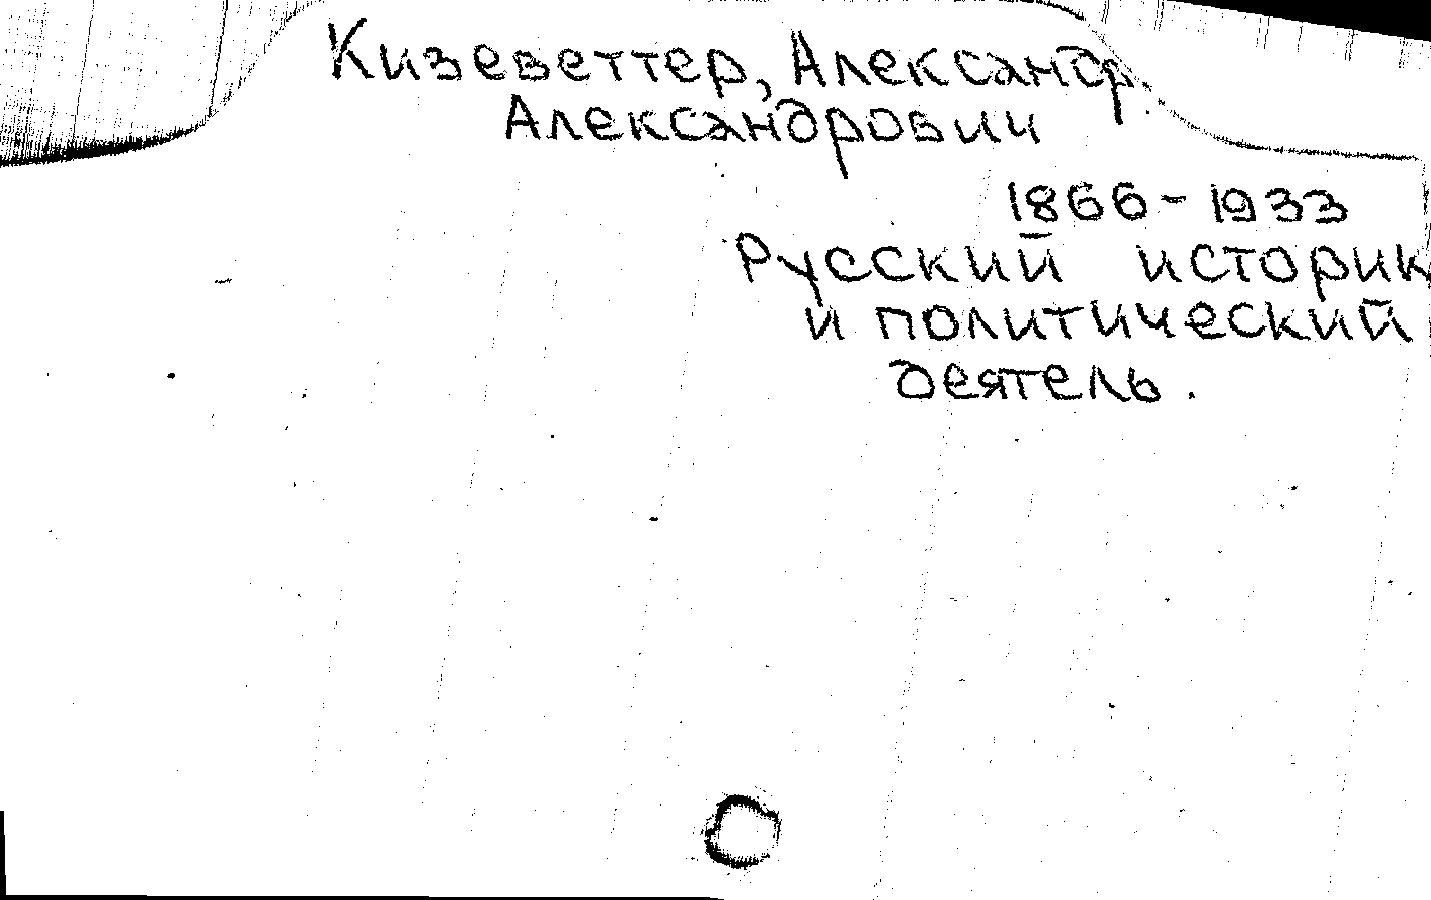 Кизеветтер, Александр.
Александрович
1866-1933
Русский историк
и политический
деятель.